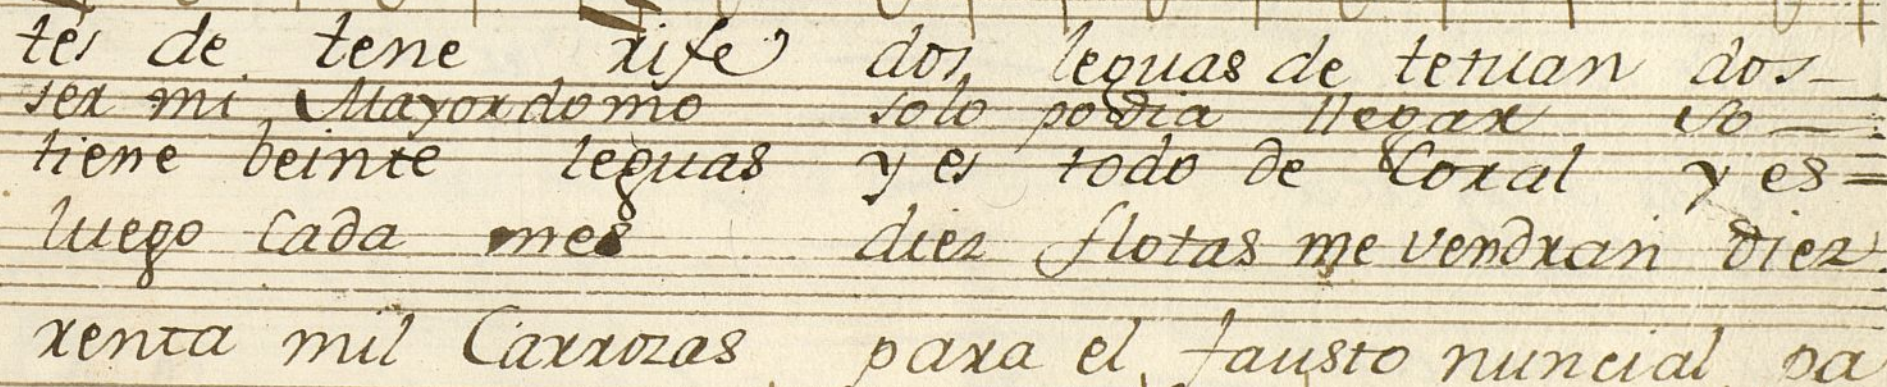 tes de tene rife dos leguas de tetuan dos
ser mi Mayordomo solo podia llegar so
tiene beinte leguas y es todo de Coral y es
luego Cada mes diez flotas me vendran diez
renta mil Carrozas para el fausto nuncial pa